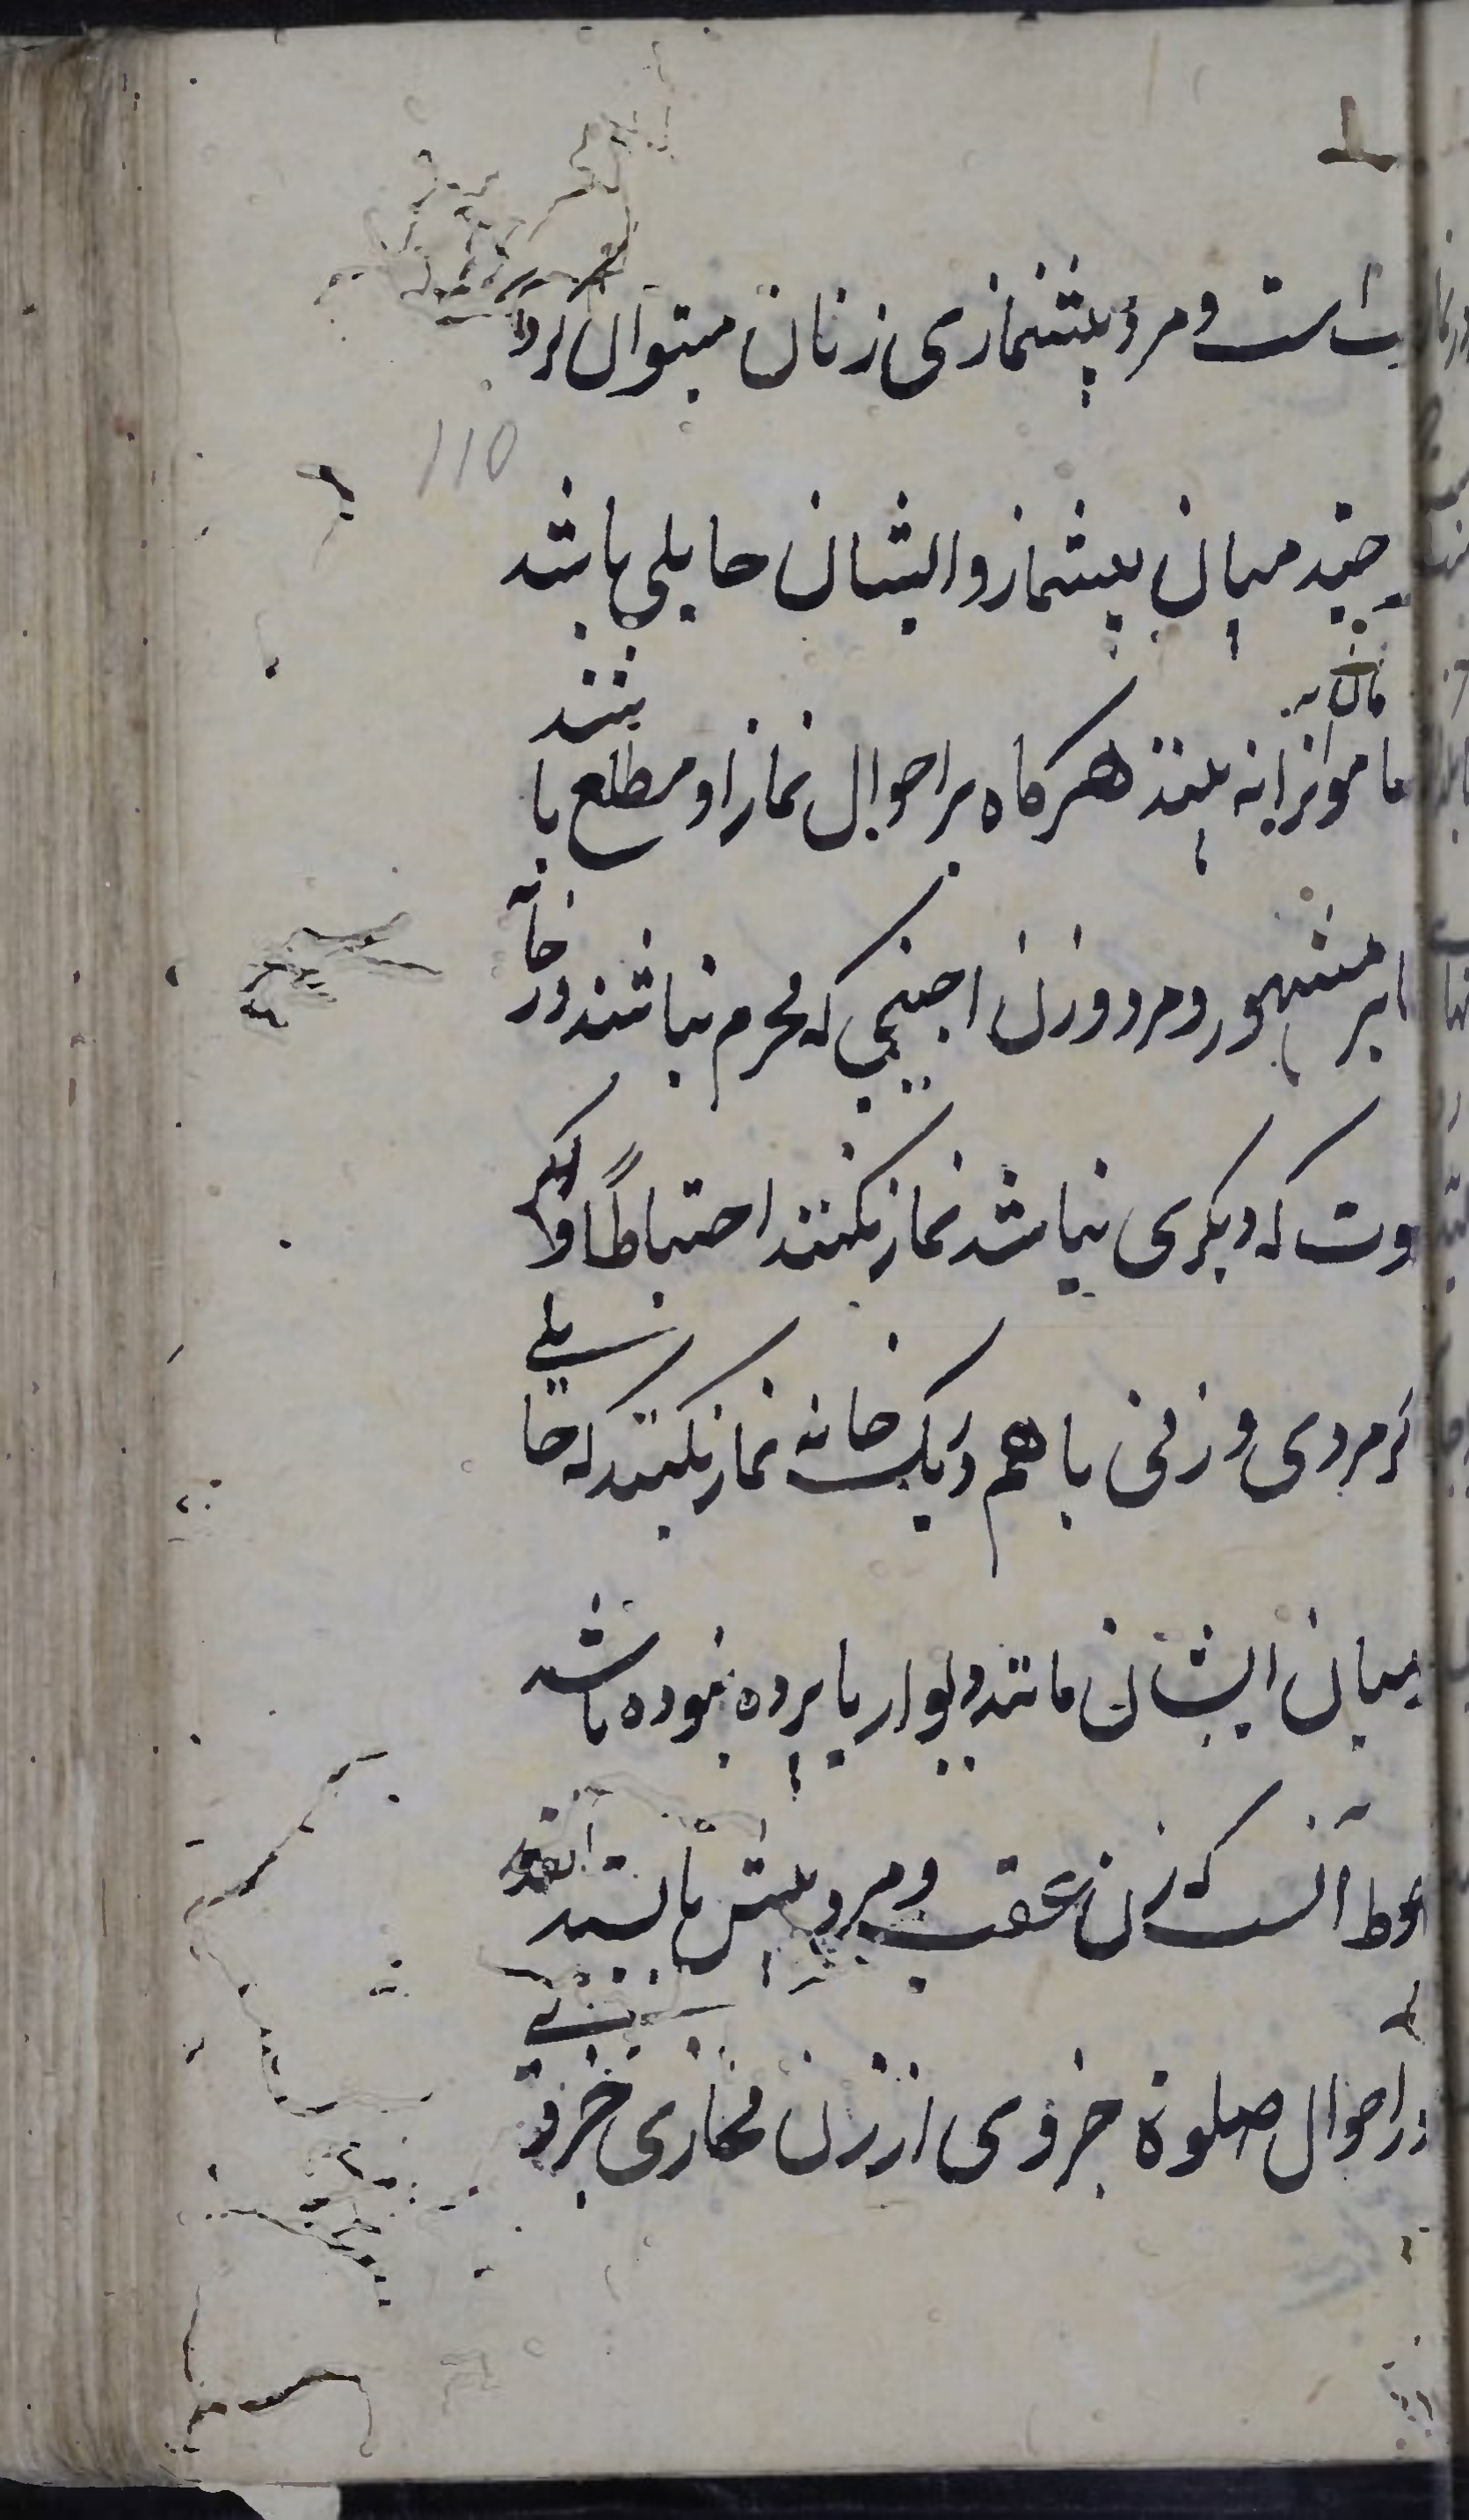 است و مرد پیشنمازی زنان میتوان کرد
110
چند میان پیشنماز و ایشان حایلی باشد
که او را نه بینند هرکاه بر احوال نماز او مطلع باشند
مشهور و مرد و زن اجنبی که محرم نباشند در خانه
که دیکری نباشد نماز نکنند احتیاطًا و
مردی و زنی با هم در یک خانه نماز نکنند که حایلی
میان ایشان مانند دیوار یا پرده نبوده باشد
آنست که زن عقب و مرد پیش بایستد
در احوال صلوة جزوی از زن محاذی جزو